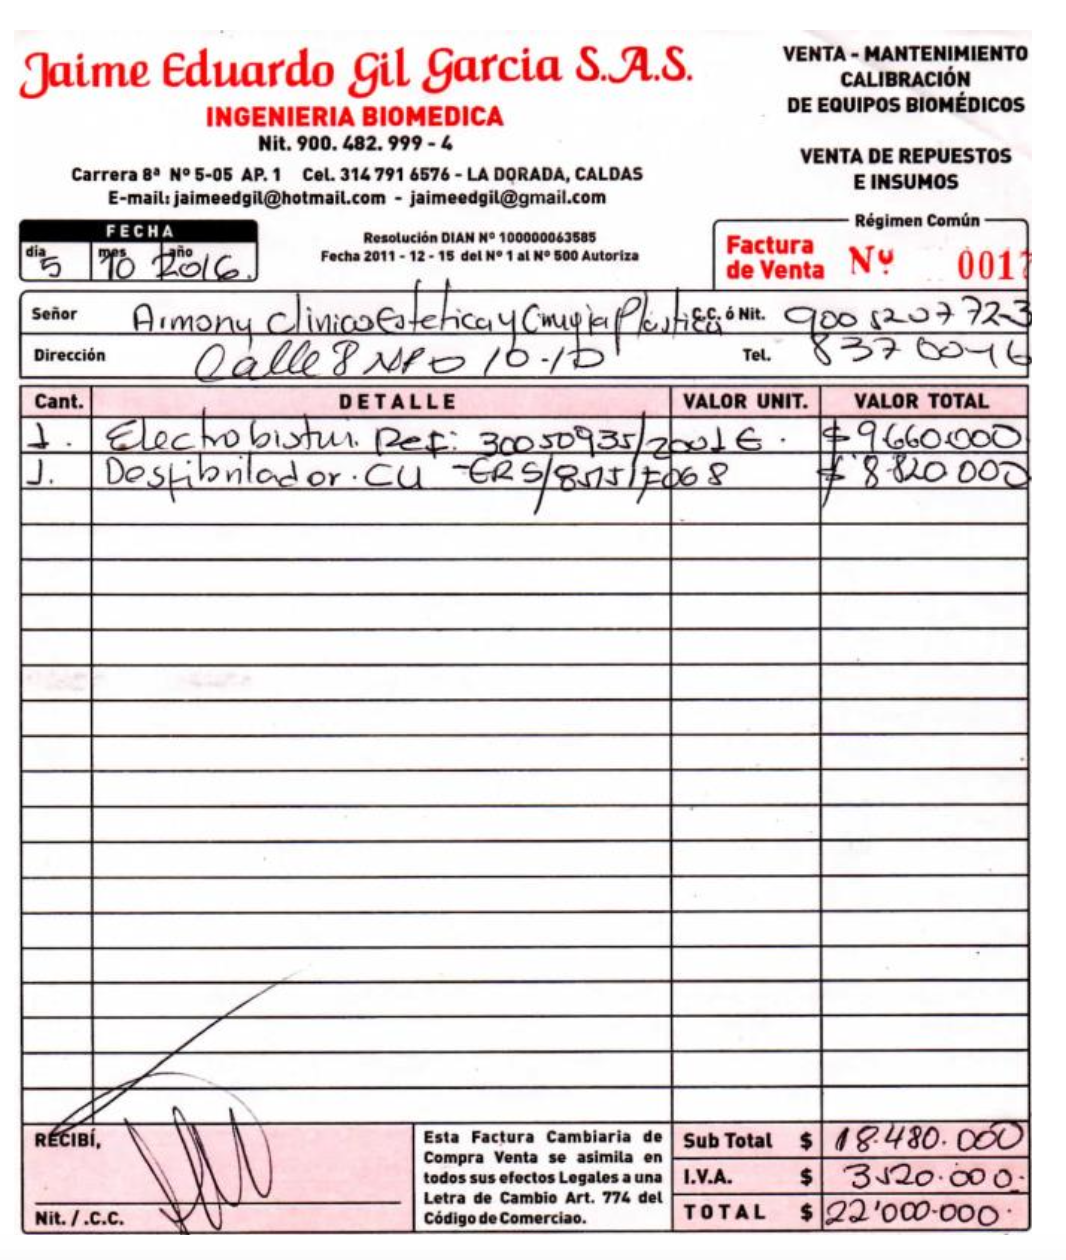 Jaime Eduardo Gil Garcia S.A.S.
INGENIERIA BIOMEDICA
Nit. 900. 482. 999 - 4
Carrera 8ª Nº 5-05 AP. 1 Cel. 314 791 6576 - LA DORADA, CALDAS
E-mail: jaimeedgil@hotmail.com - jaimeedgil@gmail.com
VENTA - MANTENIMIENTO
CALIBRACIÓN
DE EQUIPOS BIOMÉDICOS
VENTA DE REPUESTOS
E INSUMOS
FECHA
día mes año
5 10 2016.
Resolución DIAN Nº 100000063585
Fecha 2011 - 12 - 15 del Nº 1 al Nº 500 Autoriza
Régimen Común
Factura
de Venta Nº 0017
Señor Armony Clinica Estetica y Cirugia Plástica C.C. ó Nit. 900520772-3
Dirección Calle 8 Nº 10-10 Tel. 8370046
Cant. DETALLE VALOR UNIT. VALOR TOTAL
1. Electrobisturi. Ref: 30050935/2001E. $9660.000
1. Desfibrilador. CU -ER5/8515 $8820000
RECIBÍ,
Nit. / .C.C.
Esta Factura Cambiaria de
Compra Venta se asimila en
todos sus efectos Legales a una
Letra de Cambio Art. 774 del
Código de Comerciao.
Sub Total $ 18.480.000
I.V.A. $ 3520.000.
TOTAL $ 22'000.000.